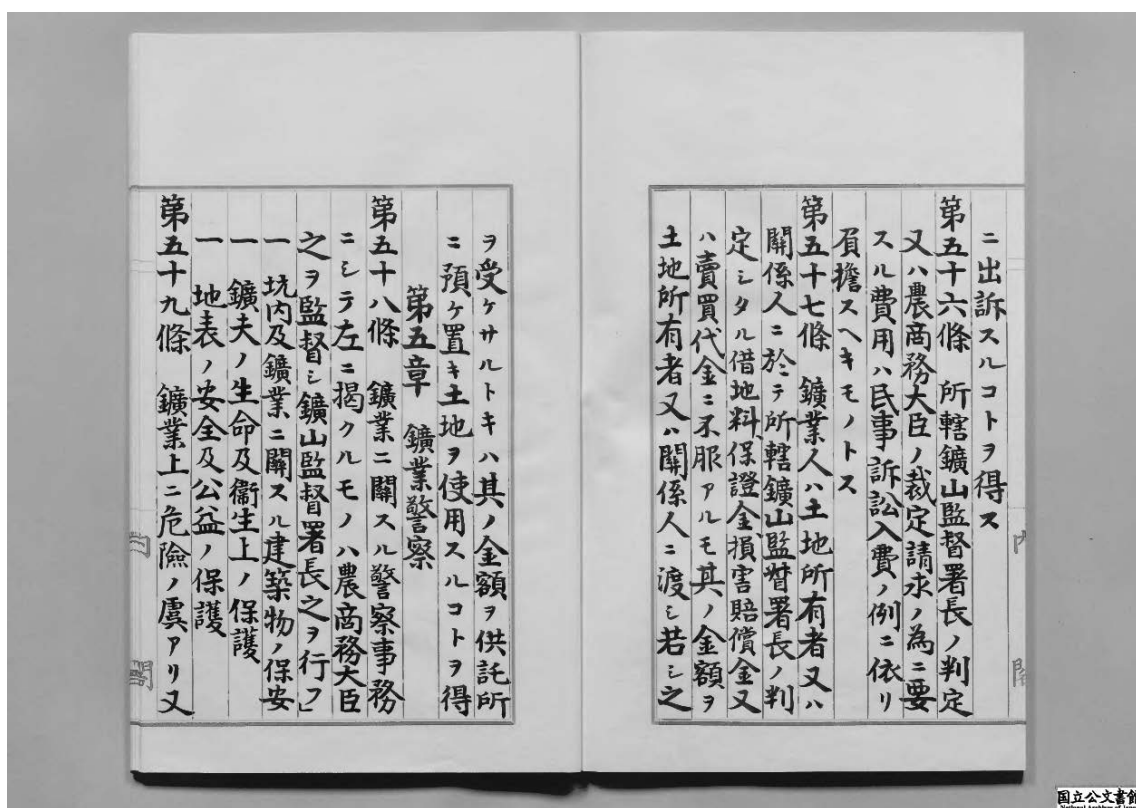 ニ出訴スルコトヲ得ス
第五十六條 所轄鑛山監督署長ノ判定
又ハ農商務大臣ノ裁定請求ノ為ニ要
スル費用ハ民事訴訟入費ノ例ニ依リ
負擔スヘキモノトス
第五十七條 鑛業人ハ土地所有者又ハ
關係人ニ於テ所轄鑛山監督署長ノ判
定シタル借地料保證金損害賠償金又
ハ賣買代金ニ不服アルモ其ノ金額ヲ
土地所有者又ハ關係人ニ渡シ若シ之
ヲ受ケサルトキハ其ノ金額ヲ供託所
ニ預ケ置キ土地ヲ使用スルコトヲ得
第五章 鑛業警察
第五十八條 鑛業ニ關スル警察事務
ニシテ左ニ揭クルモノハ農商務大臣
之ヲ監督シ鑛山監督署長之ヲ行フ
一 坑內及鑛業ニ關スル建築物ノ保安
一 鑛夫ノ生命及衞生上ノ保護
一 地表ノ安全及公益ノ保護
第五十九條 鑛業上ニ危險ノ虞アリ又
內閣
國立公文書館
National Archives of Japan